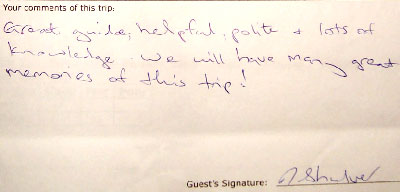 Your comments of this trip:
Great guide, helpful, polite + lots of
knowledge. We will have many great
memories of this trip!
Guest's Signature: